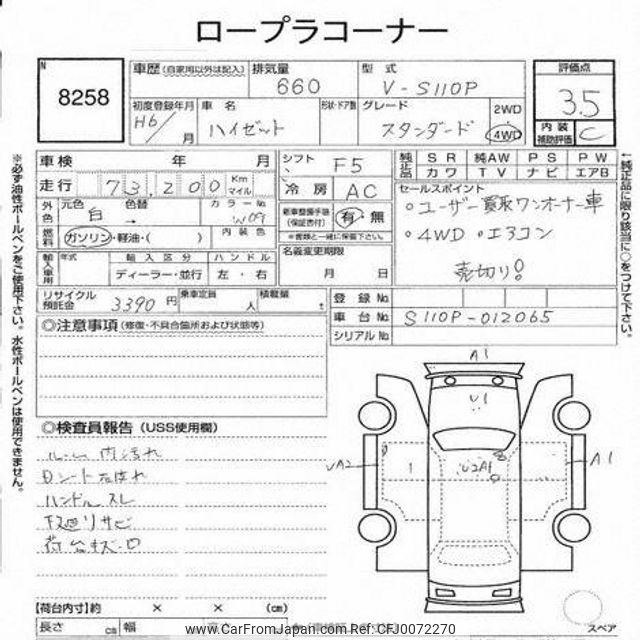 ロープラコーナー
N
8258
車歴 (自家用以外は記入)
排気量
660
型式
V-S110P
評価点
3.5
初度登録年月
H6/ 月
車名
ハイゼット
形状・ドア数
グレード
スタンダード
2WD
4WD
内装
補助評価
C
車検 年 月
シフト F5
純正品
SR 純AW PS PW
カワ TV ナビ エアB
走行 73,200 Km マイル
冷房 AC
セールスポイント
。ユーザー買取ワンオーナー車
。4WD 。エアコン
売切り!
外色
元色 色替
白 →
カラーNo
W09
新車整備手帳
(保証書付)
有・無
※書類と一緒に保管下さい。
燃料
ガソリン・軽油・( )
内装色
名義変更期限
月 日
輸入車用
年式
輸入区分
ディーラー・並行
ハンドル
左・右
リサイクル
預託金
3390 円
乗車定員
人
積載量
t
登録No
車台No S110P-012065
シリアルNo
◎注意事項 (修復・不具合箇所および状態等)
◎検査員報告 (USS使用欄)
ルーム内汚れ
Dシート右ほれ
ハンドルスレ
下廻りサビ
荷台キズ・凹
A1
U1
UA2
U2A1
A1
【荷台内寸】約 × × (cm)
長さ cm 幅
スペア
※必ず油性ボールペンをご使用下さい。水性ボールペンは使用できません。
←純正品に限り該当に○をつけて下さい。
www.CarFromJapan.com Ref:CFJ0072270